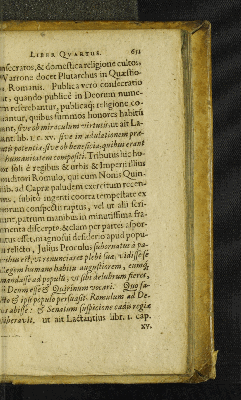 LIBER QVARTVS. 611
nsecratos, & domestica religione cultos,
Varrone docet Plutarchus in Quæstio-
Romanis. Publica vero consecratio
nt, quando publicè in Deorum nume-
m referebantur, publicaq; religione co-
bantur, quibus summos honores habiti
unt, sive ob miraculum virtutis, ut ait La-
ant. lib. 1. c. xv. sive in adulationem præ-
ntis potentiæ, sive ob beneficia, quibus erant
humanitatem compositi. Tributus hic ho-
or soli è regibus & urbis & Imperii illius
onditori Romulo, qui cum Nonis Quin-
lib. ad Capræ paludem exercitum recen-
ns, subitò ingenti coorta tempestate ex
minum conspectis raptus, vel ut alii feri-
unt, patrum manibus in minutissima fra-
menta discerptus, & clam per partes aspor-
utus esset, magno sui desiderio apud popu-
relicto, Julius Proculus subornatur à pa-
ribus est, ut renunciaret plebi suæ, vidisse se
Regem humano habitu augustiorem, eumq;
mandasse ad populū, ut sibi delubrum fieret,
Deum esse & Quirinum vocari. Quo fa-
to & ipsi populo persuasit, Romulum ad De-
os abisse: & Senatum suspicione cædis regiæ
liberavit. ut ait Lactantius libr. 1. cap.
XV.